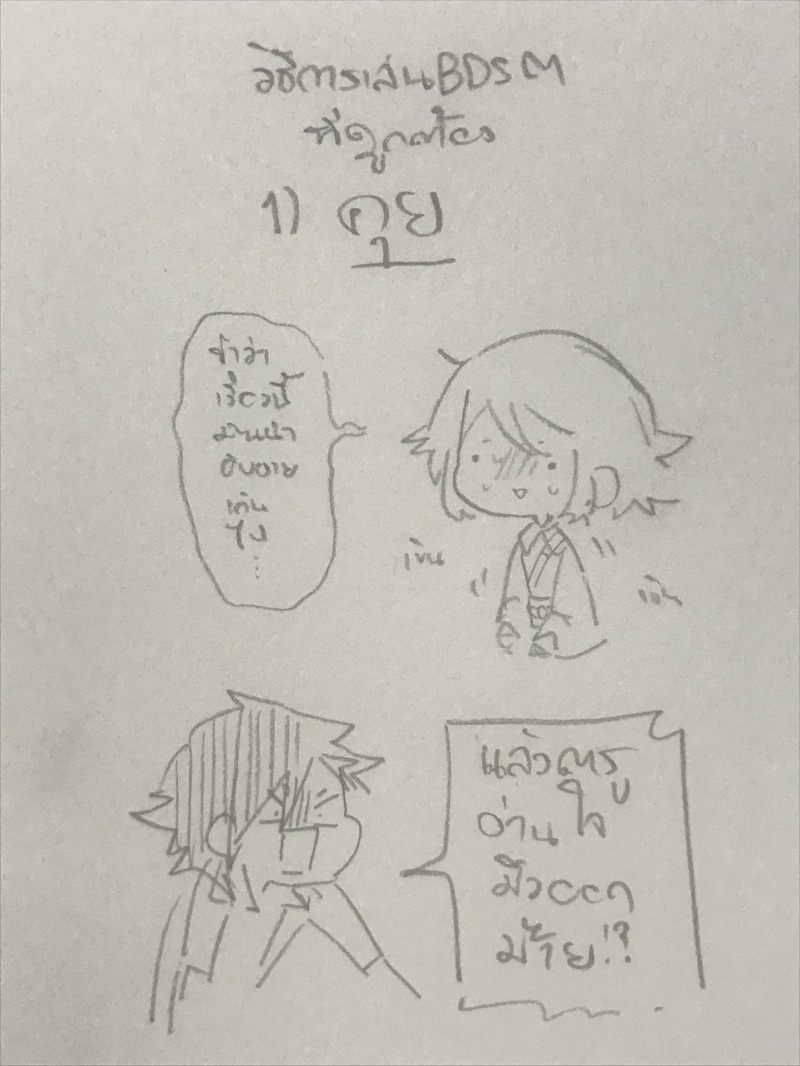 วิธีการเล่นBDSM
ที่ถูกต้อง
1) คุย
ข้าว่า
เรื่องนี้
มันน่า
อับอาย
เกิน
ไป
...
เขิน
เขิน
แล้วตรู
อ่านใจ
มึงออก
ม้าย!?